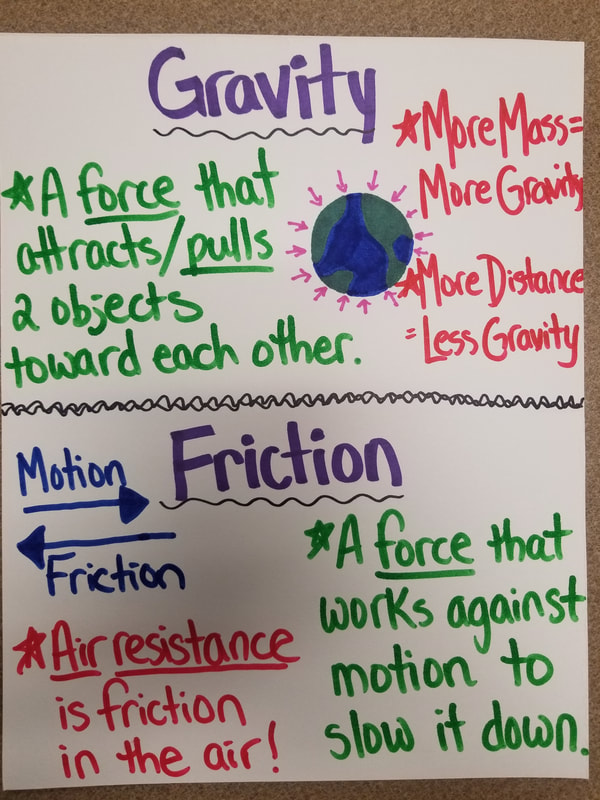 Gravity
★A force that
attracts/pulls
2 objects
toward each other.
★More Mass=
More Gravity
★More Distance
=Less Gravity
Motion
Friction
Friction
★A force that
works against
motion to
slow it down.
★Air resistance
is friction
in the air!